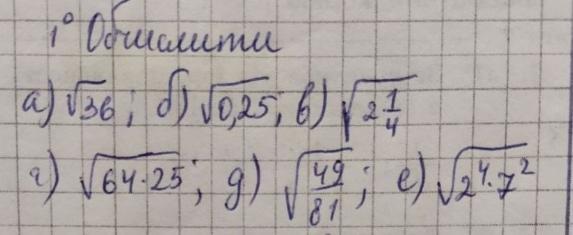 1° Обчислити
а) √36; б) √0,25; в) √2 1/4
г) √64·25; д) √49/81; е) √2⁴·7²